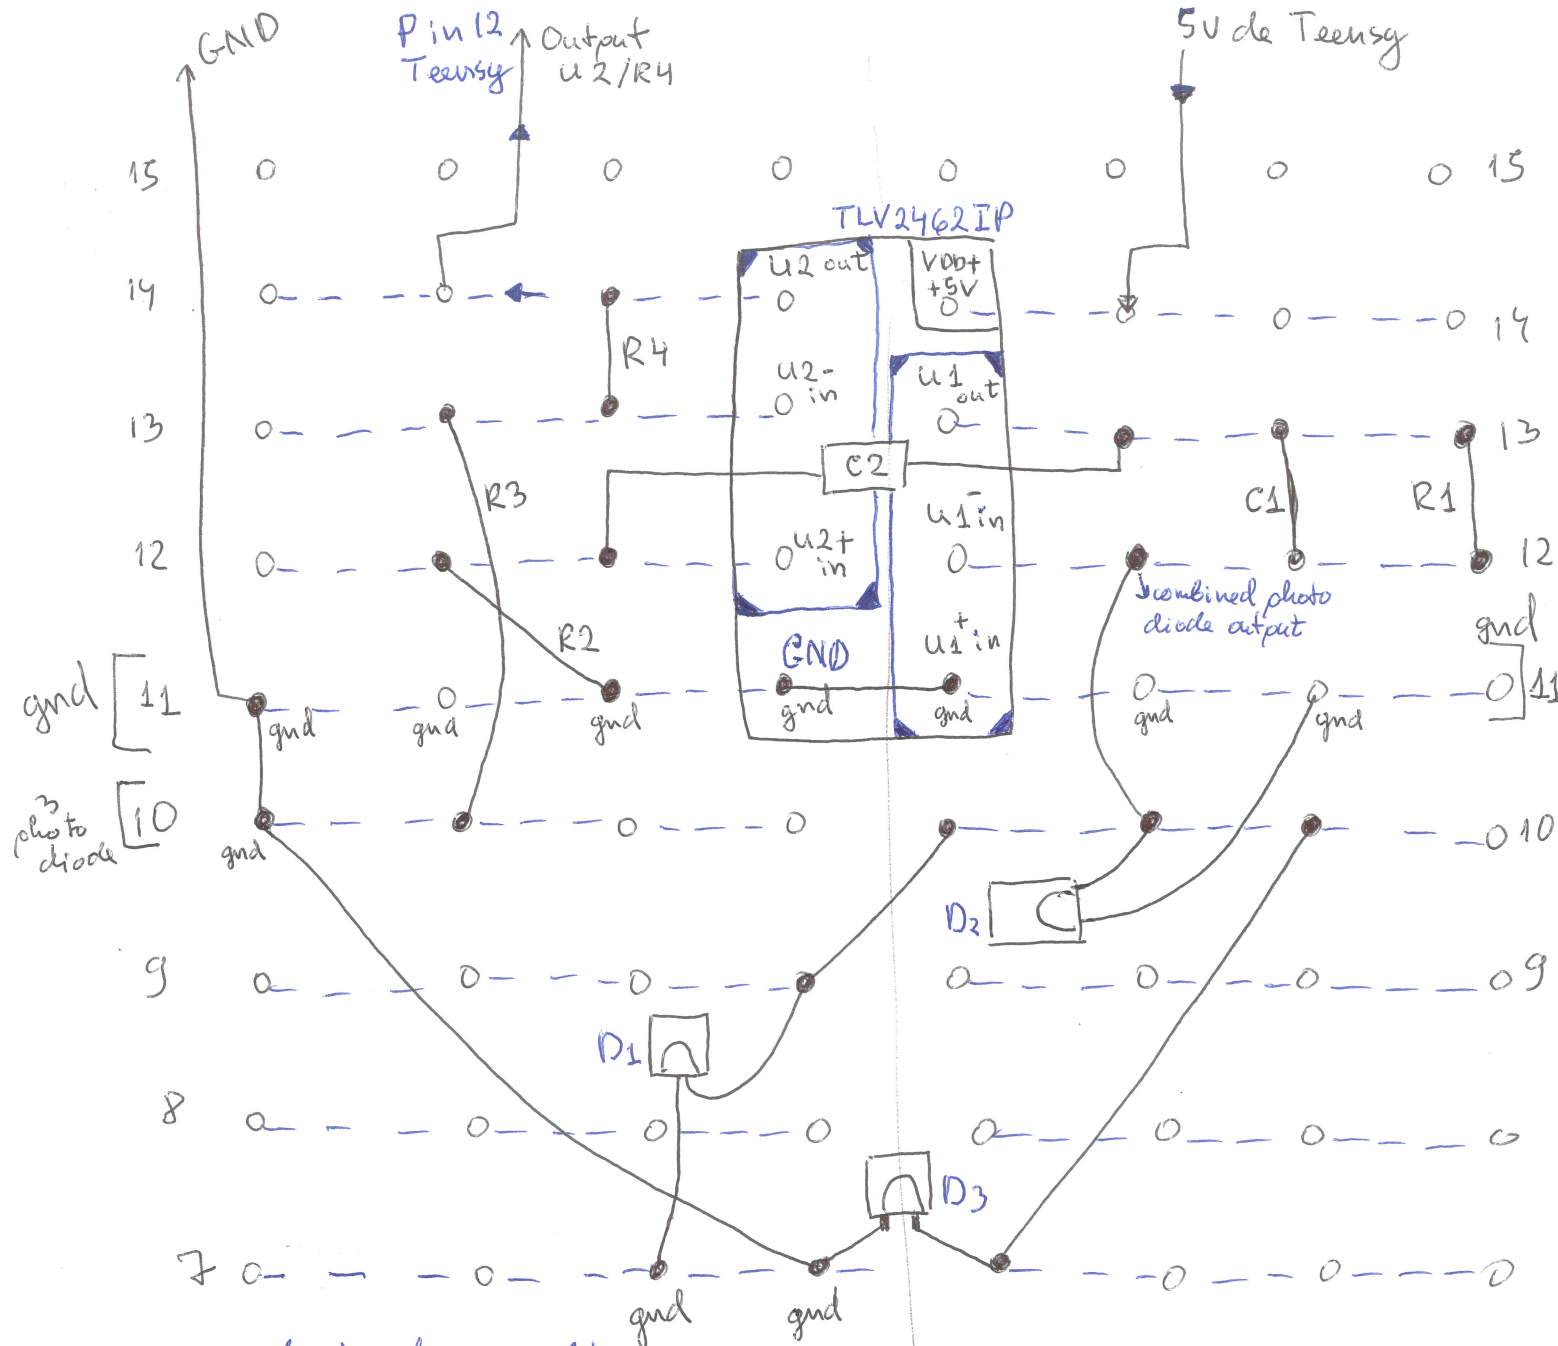 GND
Pin 12
Teensy
Output
U2/R4
5V de Teensy
15
15
TLV2462IP
14
U2 out
VDD+
+5V
14
R4
U2-
in
U1
out
13
13
C2
R3
C1
R1
12
U2+
in
U1-in
12
combined photo
diode output
R2
GND
U1+in
gnd
gnd
11
gnd
gnd
gnd
gnd
gnd
gnd
gnd
11
3
photo
diode
10
gnd
10
D2
9
9
D1
8
D3
7
gnd
gnd